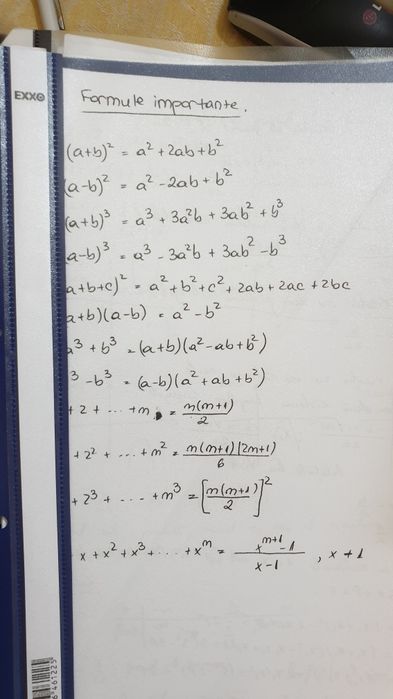 EXXO
Formule importante.
(a+b)² = a² + 2ab + b²
(a-b)² = a² - 2ab + b²
(a+b)³ = a³ + 3a²b + 3ab² + b³
a-b)³ = a³ - 3a²b + 3ab² - b³
a+b+c)² = a² + b² + c² + 2ab + 2ac + 2bc
a+b)(a-b) = a² - b²
a³ + b³ = (a+b)(a² - ab + b²)
³ - b³ = (a-b)(a² + ab + b²)
+ 2 + ... + n = n(n+1)/2
+ 2² + ... + n² = n(n+1)(2n+1)/6
+ 2³ + ... + n³ = [n(n+1)/2]²
x + x² + x³ + ... + xⁿ = xⁿ⁺¹ - 1 / x - 1 , x + 1
6461225